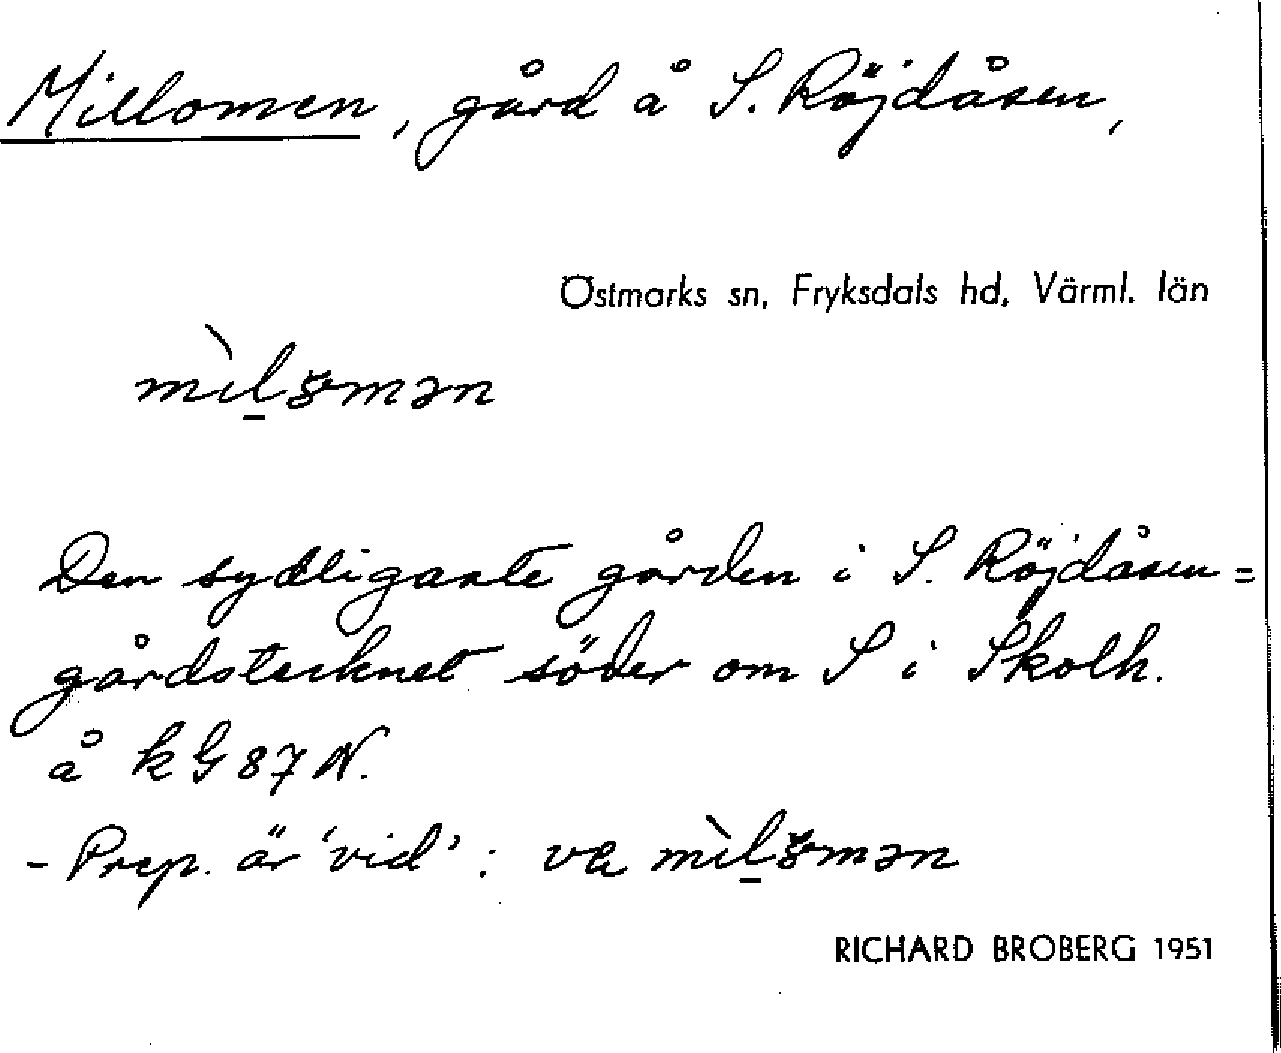 Millomen, gård å S. Röjdåsen,
Östmarks sn, Fryksdals hd, Värml. län
Den sydligaste gården i S. Röjdåsen =
gårdstecknet söder om S i Skolh.
å kG 87 N.
- Prep. är 'vid' : va
RICHARD BROBERG 1951